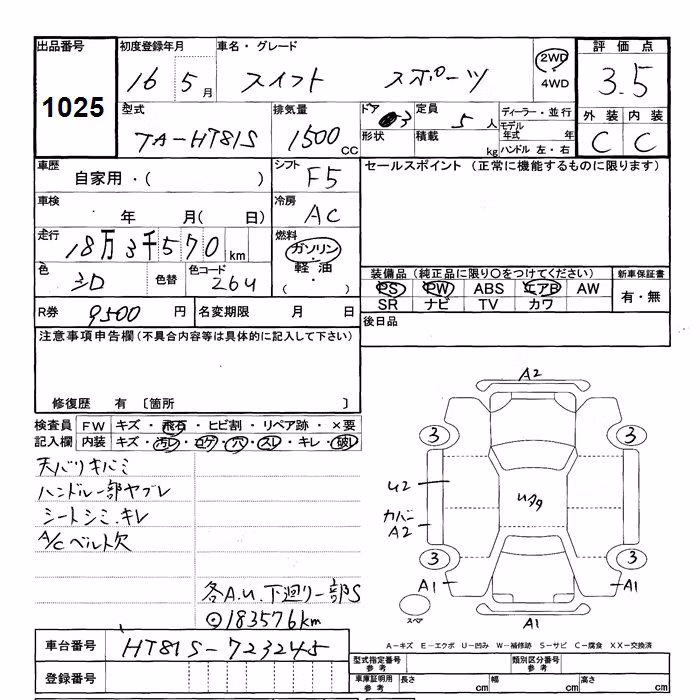 出品番号 1025
初度登録年月 16 5月
車名・グレード スイフト スポーツ
2WD
4WD
評価点 3.5
外装 内装
C C
型式 TA-HT81S
排気量 1500 CC
ドア 3
形状
定員 5人
積載 kg
ディーラー・並行
モデル年式 年
ハンドル 左・右
車歴 自家用・( )
シフト F5
セールスポイント (正常に機能するものに限ります)
車検 年 月( 日)
冷房 AC
走行 18万3千570km
燃料 ガソリン・軽油・( )
色 シロ 色替 色コード 26U
装備品 (純正品に限り〇をつけてください)
新車保証書
PS PW ABS エアB AW
SR ナビ TV カワ
有・無
R券 9500円 名変期限 月 日
後日品
注意事項申告欄(不具合内容等は具体的に記入して下さい)
修復歴 有 〔箇所 〕
検査員記入欄
FW キズ・飛石・ヒビ割・リペア跡・×要
内装 キズ・汚レ・コゲ・穴・スレ・キレ・破レ
天バリキバミ
ハンドル一部ヤブレ
シートシミ.キレ
A/Cベルト欠
各A.U.下廻り一部S
183576km
A2
3 3
U2
カバー
A2
3 3
A1 A1
スペア
A1
A-キズ E-エクボ U-凹み W-補修跡 S-サビ C-腐食 XX-交換済
車台番号 HT81S-723245
登録番号
型式指定番号 参考
類別区分番号 参考
車庫証明用 参考
長さ cm 幅 cm 高さ cm